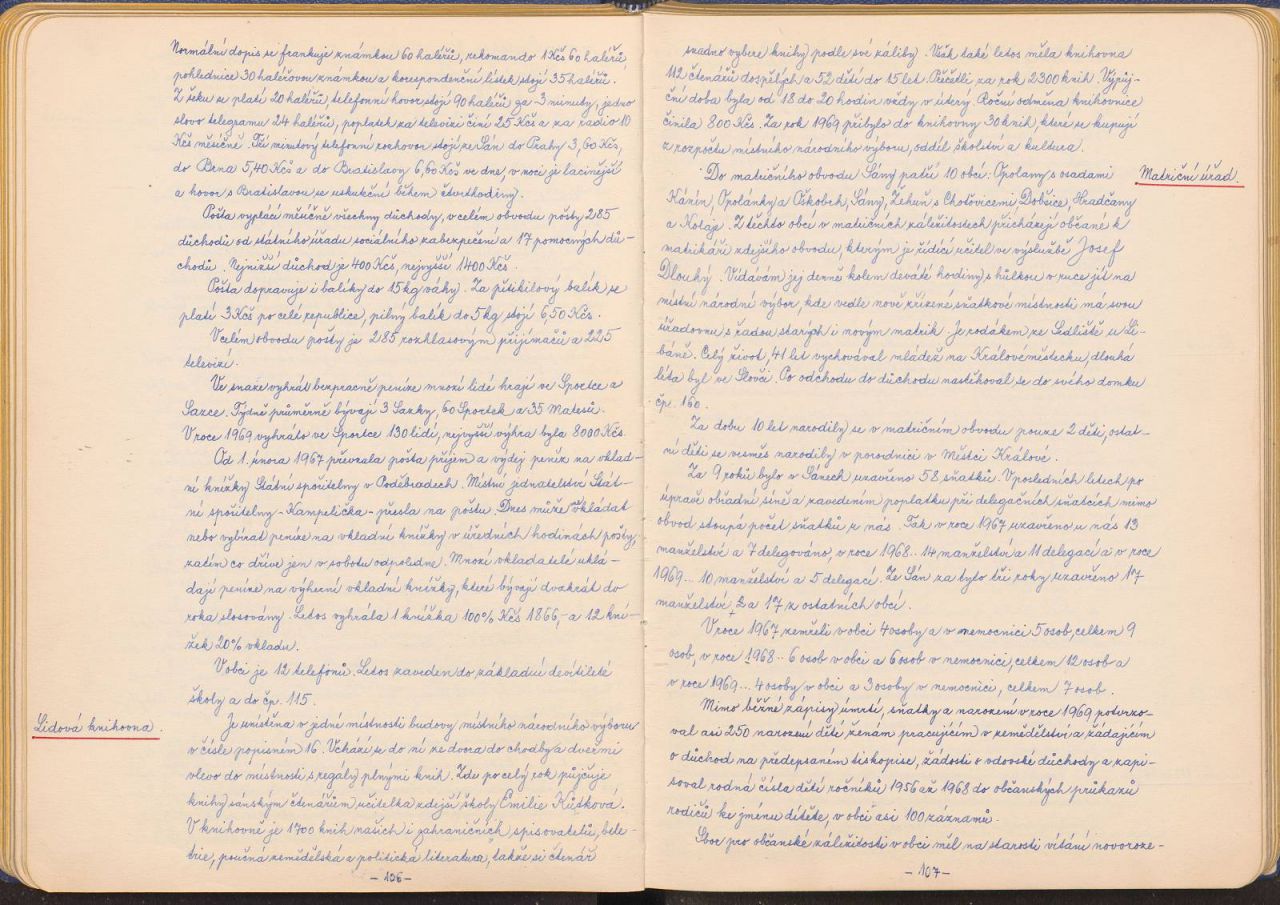 Normální dopis se frankuje známkou 60 haléřů, rekomando 1 Kčs 60 haléřů
pohlednice 30 haléřovou známkou a korespondenční lístek stojí 35 haléřů.
Z šeku se platí 20 haléřů, telefonní hovor stojí 90 haléřů za 3 minuty, jedno
slovo telegramu 24 haléřů, poplatek za televizi činí 25 Kčs a za radio 10
Kčs měsíčně. Tří minutový telefonní rozhovor stojí ze Sán do Prahy 3,60 Kčs,
do Brna 5,40 Kčs a do Bratislavy 6,60 Kčs ve dne, v noci je lacinější
a hovor s Bratislavou se uskuteční během čtvrthodiny.
Pošta vyplácí měsíčně všechny důchody, v celém obvodu pošty 285
důchodů od státního úřadu sociálního zabezpečení a 17 pomocných dů-
chodů. Nejnižší důchod je 400 Kčs, nejvyšší 1400 Kčs.
Pošta dopravuje i balíky do 15 kg váhy. Za pětikilový balík se
platí 3 Kčs po celé republice, pilný balík do 5 kg stojí 6,50 Kčs.
V celém obvodu pošty je 285 rozhlasovým přijímačů a 225
televizí.
Ve snaze vyhrát bezpracně peníze mnozí lidé hrají ve Sportce a
Sazce. Týdně průměrně bývají 3 Sazky, 60 Sportek a 35 Matesů.
V roce 1969 vyhráto ve Sportce 130 lidí, nejvyšší výhra byla 8000 Kčs.
Od 1. února 1967 převzala pošta příjem a výdej peněz na vklad-
ní knížky Státní spořitelny v Poděbradech. Místní jednatelství Stát-
ní spořitelny - Kampelička - přešla na poštu. Dnes může vkládat
nebo vybírat peníze na vkladní knížky v úředních hodinách pošty,
zatím co dříve jen v sobotu odpoledne. Mnozí vkladatelé uklá-
dají peníze na výherní vkladní knížky, které bývají dvakrát do
roka slosovány. Letos vyhrála 1 knížka 100% Kčs 1866,- a 12 kní-
žek 20% vkladu.
V obci je 12 telefonů. Letos zaveden do základní devítileté
školy a do čp. 115.
Lidová knihovna.
Je umístěna v jedné místnosti budovy místního národního výboru
v čísle popisném 16. Vchází se do ní ze dvora do chodby a dveřmi
vlevo do místnosti s regály plnými knih. Zde po celý rok půjčuje
knihy sánským čtenářům učitelka zdejší školy Emilie
V knihovně je 1700 knih našich i zahraničních spisovatelů, bele-
trie, poučná zemědělská a politická literatura, takže si čtenář
- 106 -
snadno vybere knihy podle své záliby. Však také letos měla knihovna
112 čtenářů dospělých a 52 dětí do 15 let. Přečetli za rok 2300 knih. Výpůj-
ční doba byla od 18 do 20 hodin vždy v úterý. Roční odměna knihovnice
činila 800 Kčs. Za rok 1969 přibylo do knihovny 30 knih, které se kupují
z rozpočtu místního národního výboru, oddíl školství a kultura.
Matriční úřad.
Do matričního obvodu Sány patří 10 obcí: Opolany s osadami
Kánín, Opolánky a Oškobrh, Sány, Žehuň s Chotovicemi, Dobšice, Hradčany
a Kolaje. Z těchto obcí v matričních záležitostech přicházejí občané k
matrikáři zdejšího obvodu, kterým je řídící učitel ve výslužbě Josef
Dlouhý. Vídávám jej denně kolem deváté hodiny s hůlkou v ruce jít na
místní národní výbor, kde vedle nově zřízené sňatkové místnosti má svou
úřadovnu s řadou starých i novým matrik. Je rodákem ze Sedliště u Li-
báně. Celý život, 41 let vychovával mládež na Královéměstecku, dlouhá
léta byl ve Slovči. Po odchodu do důchodu nastěhoval se do svého domku
čp. 160.
Za dobu 10 let narodily se v matričním obvodu pouze 2 děti, ostat-
ní děti se vesměs narodily v porodnici v Městci Králové.
Za 9 roků bylo v Sánech uzavřeno 58 sňatků. V posledních letech po
úpravě obřadní síně a zavedením poplatku při delegačních sňatcích mimo
obvod stoupá počet sňatků u nás. Tak v roce 1967 uzavřeno u nás 13
manželství a 7 delegováno, v roce 1968.. 14 manželství a 11 delegací a v roce
1969... 10 manželství a 5 delegací. Ze Sán za tyto tři roky uzavřeno 17
manželství, a 17 z ostatních obcí.
V roce 1967 zemřeli v obci 4 osoby a v nemocnici 5 osob, celkem 9
osob, v roce 1968.. 6 osob v obci a 6 osob v nemocnici, celkem 12 osob a
v roce 1969... 4 osoby v obci a 3 osoby v nemocnici, celkem 7 osob.
Mimo běžné zápisy úmrtí, sňatky a narození v roce 1969 potvrzo-
val asi 250 narození dětí ženám pracujícím v zemědělství a žádajícím
o důchod na předepsaném tiskopise, žádosti o vdovské důchody a zapi-
soval rodná čísla dětí ročníků 1956 až 1968 do občanských průkazů
rodičů ke jménu dítěte, v obci asi 100 záznamů.
Sbor pro občanské záležitosti v obci měl na starosti vítání novoroze-
- 107 -